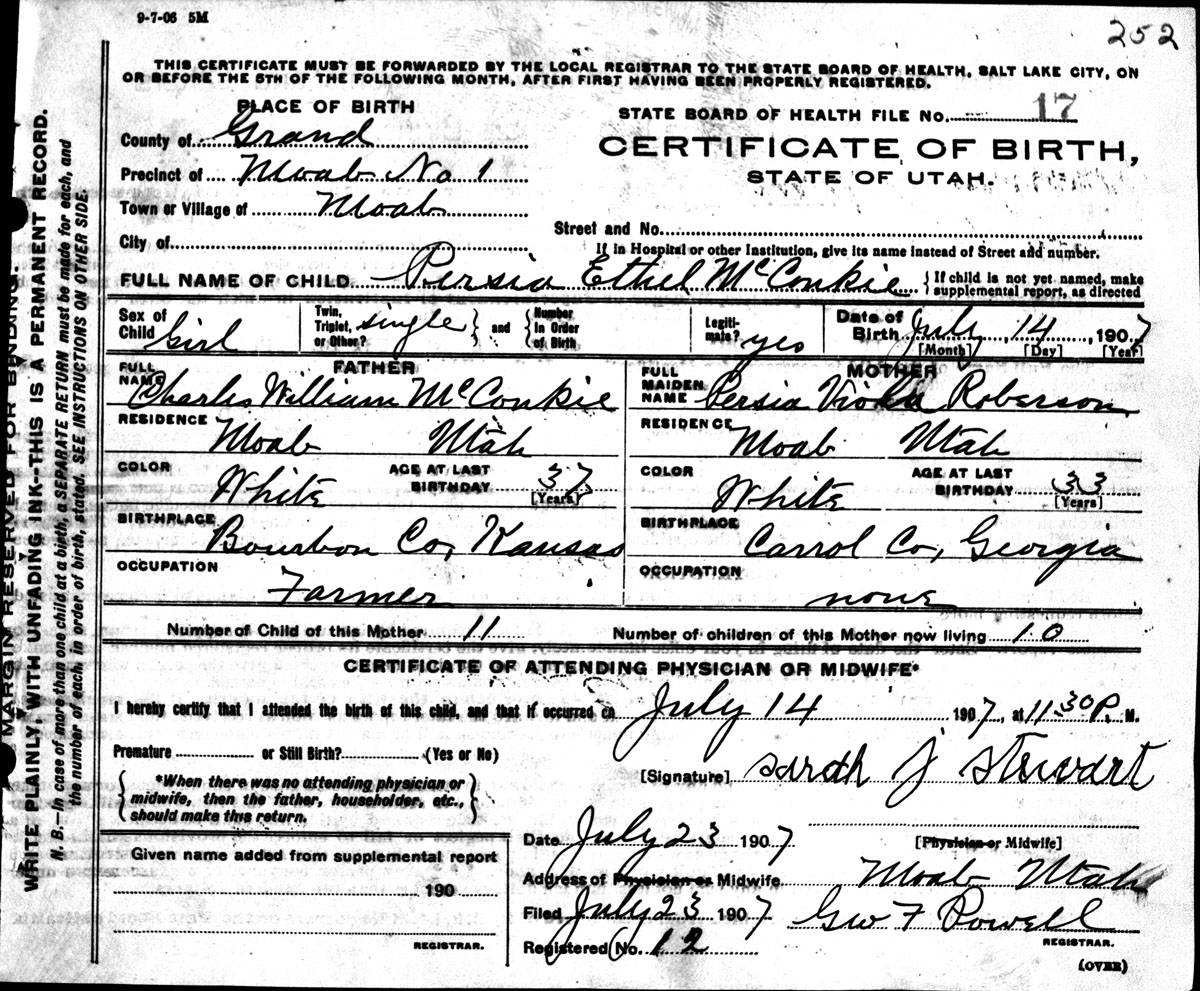 9-7-06 5M
252
THIS CERTIFICATE MUST BE FORWARDED BY THE LOCAL REGISTRAR TO THE STATE BOARD OF HEALTH, SALT LAKE CITY, ON
OR BEFORE THE 5TH OF THE FOLLOWING MONTH, AFTER FIRST HAVING BEEN PROPERLY REGISTERED.
PLACE OF BIRTH
STATE BOARD OF HEALTH FILE No. 17
County of Grand
CERTIFICATE OF BIRTH,
Precinct of Moab No 1
STATE OF UTAH.
Town or Village of Moab
Street and No.
City of
If in Hospital or other Institution, give its name instead of Street and number.
FULL NAME OF CHILD Persia Ethel McConkie {If child is not yet named, make
supplemental report, as directed
Sex of Child Girl
Twin, Triplet, or Other? single } and { Number in Order of Birth
Legiti-mate? yes
Date of Birth July 14, 1907
[Month] [Day] [Year]
FATHER
FULL NAME Charles William McConkie
RESIDENCE Moab Utah
COLOR White AGE AT LAST BIRTHDAY 37
[Years]
BIRTHPLACE Bourbon Co, Kansas
OCCUPATION Farmer
MOTHER
FULL MAIDEN NAME Persia Viola Roberson
RESIDENCE Moab Utah
COLOR White AGE AT LAST BIRTHDAY 33
[Years]
BIRTHPLACE Carrol Co, Georgia
OCCUPATION none
Number of Child of this Mother 11 Number of children of this Mother now living 10
CERTIFICATE OF ATTENDING PHYSICIAN OR MIDWIFE*
I hereby certify that I attended the birth of this child, and that it occurred on July 14 1907, at 11:30 P. M.
Premature or Still Birth? (Yes or No)
[Signature] Sarah J Stewart
{ *When there was no attending physician or
midwife, then the father, householder, etc.,
should make this return. }
Date July 23 1907 [Physician or Midwife]
Given name added from supplemental report
190
REGISTRAR.
Address of Physician or Midwife Moab Utah
Filed July 23 1907 Geo F Powell
Registered No. 12 REGISTRAR.
(OVER)
MARGIN RESERVED FOR BINDING.
WRITE PLAINLY, WITH UNFADING INK—THIS IS A PERMANENT RECORD.
N. B.—In case of more than one child at a birth, a SEPARATE RETURN must be made for each, and
the number of each, in order of birth, stated. SEE INSTRUCTIONS ON OTHER SIDE.